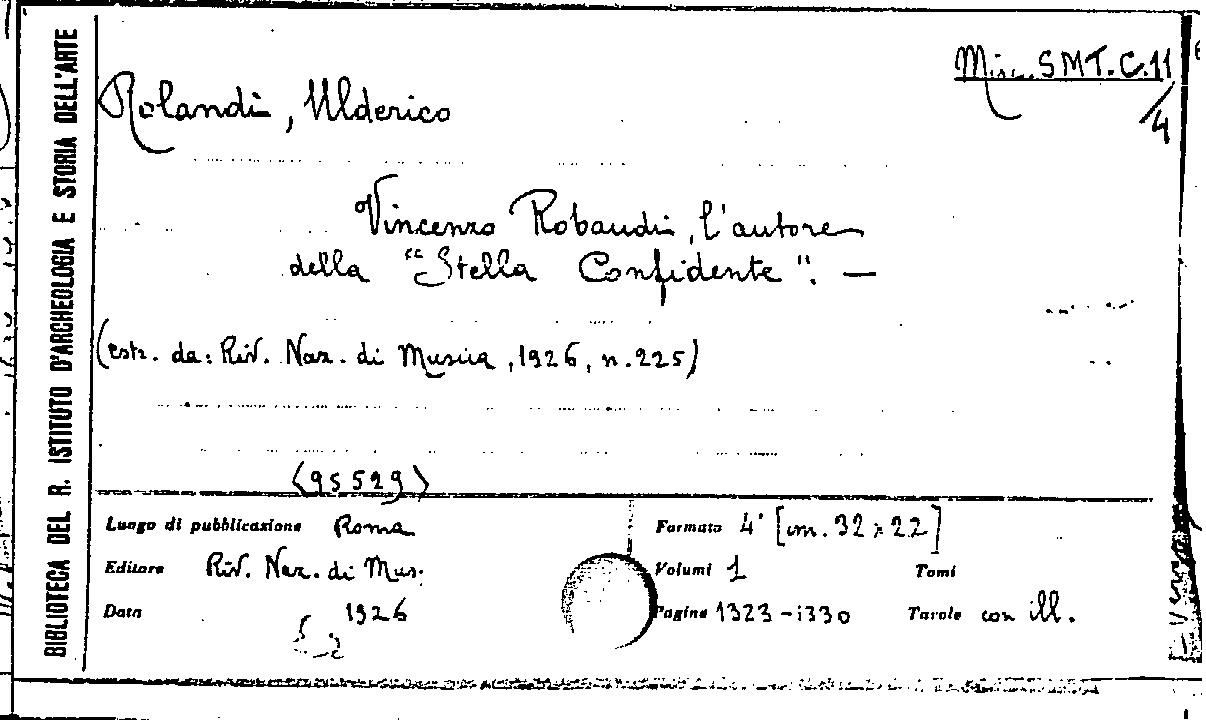 BIBLIOTECA DEL R. ISTITUTO D'ARCHEOLOGIA E STORIA DELL'ARTE
Misc. SMT. C. 11
/4
Rolandi, Ulderico
Vincenzo Robaudi, l'autore
della "Stella Confidente". —
(estr. da: Riv. Naz. di Musica, 1926, n. 225)
(95529)
Luogo di pubblicazione Roma
Formato 4° [cm. 32 x 22]
Editore Riv. Naz. di Mus.
Volumi 1
Tomi
Data 1926
Pagine 1323-1330
Tavole con ill.